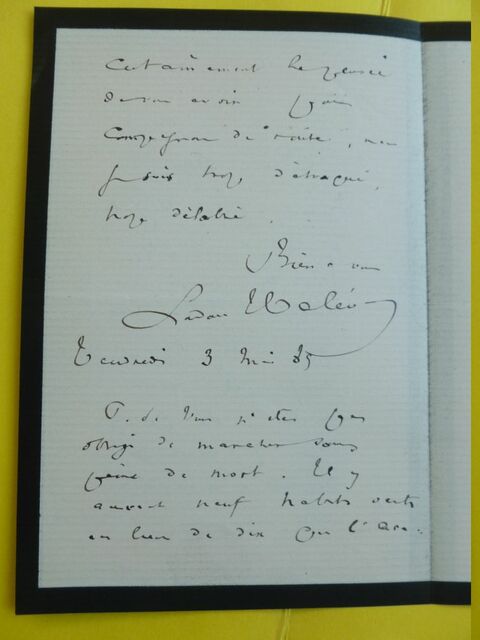 Certainement la pensée
de vous avoir pour
compagnon de route, mais
je suis trop détraqué,
trop délabré.
Bien à vous
Halévy
Vendredi 3 Mai
n'êtes pas
obligé de marcher sous
peine de mort. Il y
aurait neuf habits verts
au lieu de dix que l'Aca-